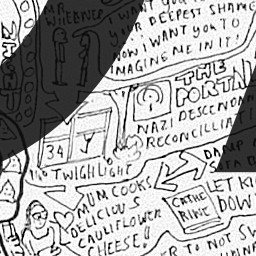 MR
WHEBNER
I WANT YOU TO
YOUR DEEPEST SHAME
NOW I WANT YOU TO
IMAGINE ME IN IT!
THE
PORTA
NAZI DESCENDAN
RECONCILLIATI
34 Y
TWIGHLIGHT
MUM COOKS
DELICIOUS
CAULIFLOWER
CHEESE!!
CATHE
RINE
LET KI
DOW
ER TO NOT SW